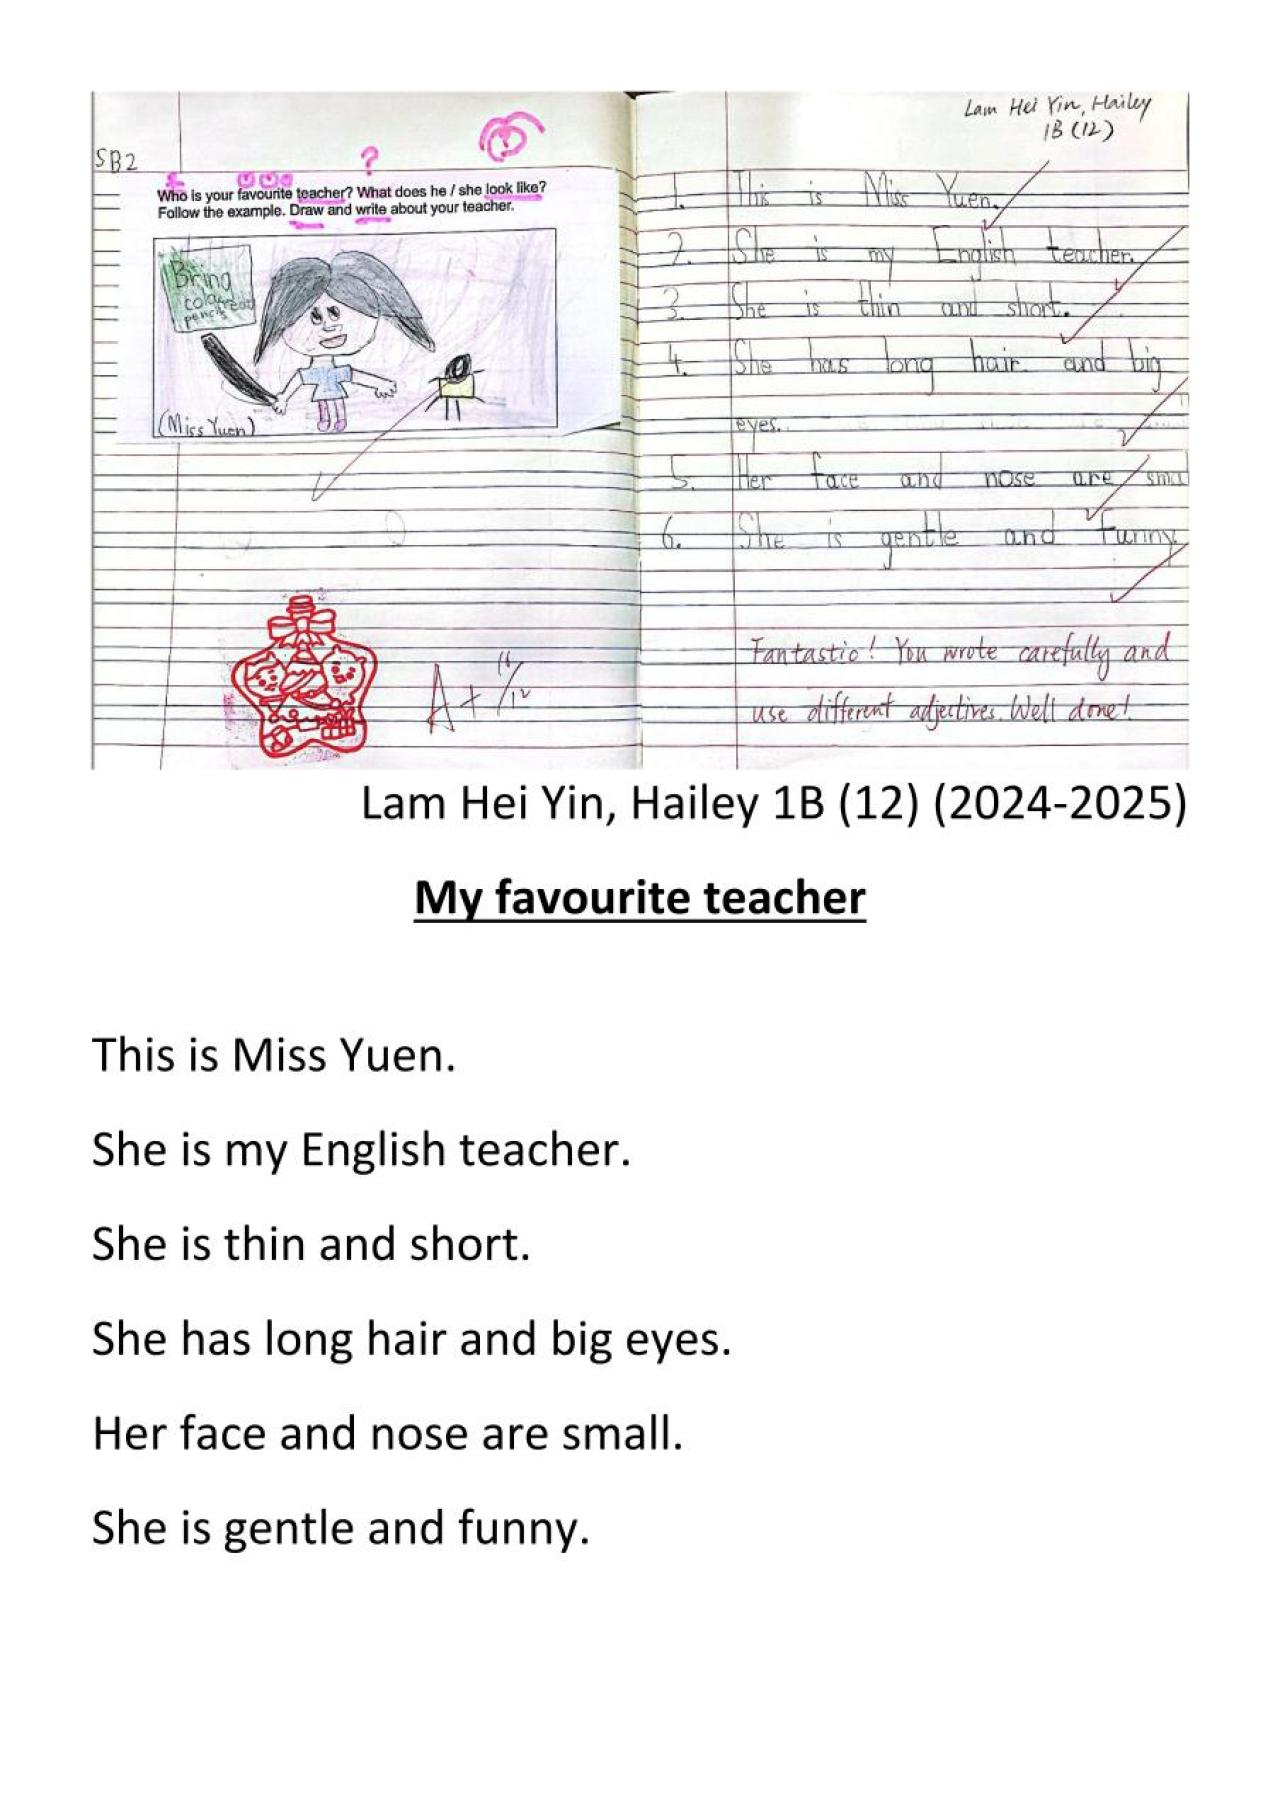 Lam Hei Yin, Hailey
1B (12)
SB2
?
Who is your favourite teacher? What does he / she look like?
Follow the example. Draw and write about your teacher.
Bring
colour
pencils
(Miss Yuen)
1. This is Miss Yuen.
2. She is my English teacher.
3. She is thin and short.
4. She has long hair and big
eyes.
5. Her face and nose are smal
6. She is gentle and funny.
Fantastic! You wrote carefully and
use different adjectives. Well done!
A+ 16/12
Lam Hei Yin, Hailey 1B (12) (2024-2025)
My favourite teacher
This is Miss Yuen.
She is my English teacher.
She is thin and short.
She has long hair and big eyes.
Her face and nose are small.
She is gentle and funny.